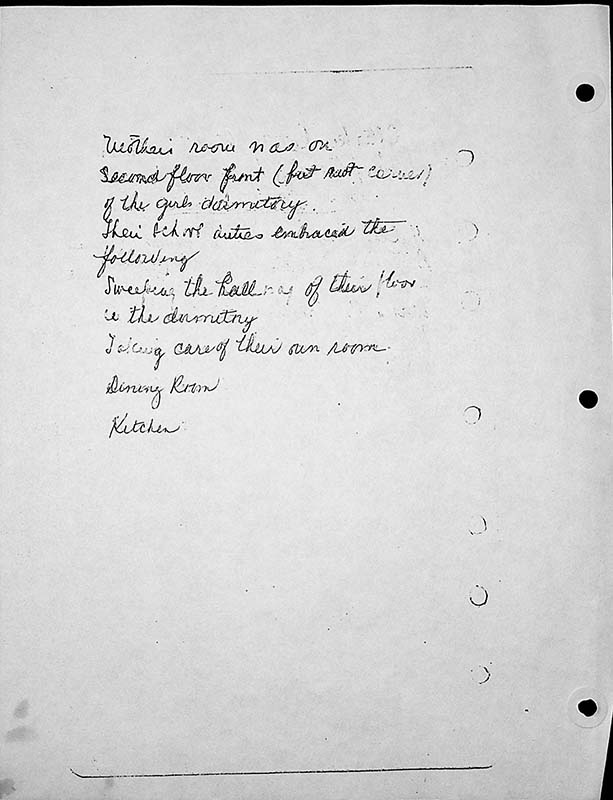 Mothers room was on
second floor front (             corner)
of the girls dormitory.
Their school duties embraced the
following
Sweeping the hallway of their floor
in the dormitory
Taking care of their own room
Dining Room
Kitchen